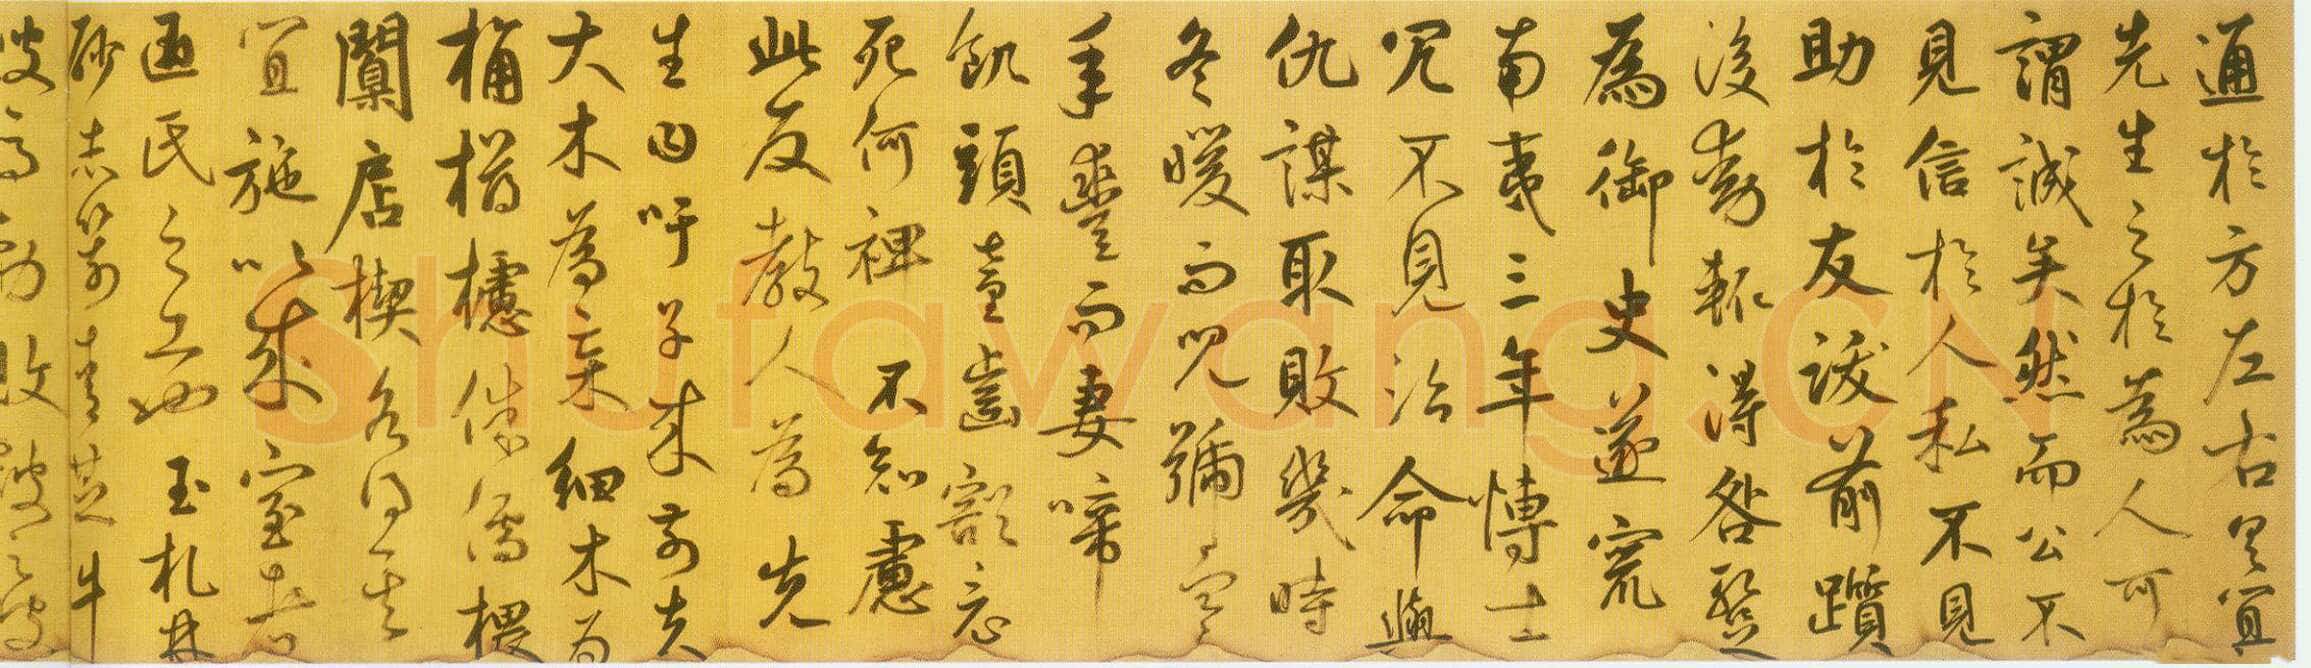 通於方左右具宜
先生之於為人可
謂誠矣然而公不
見信於人私不見
助於友跋前躓
後動輒得咎暫
為御史遂竄
南夷三年博士
冗不見治命與
仇謀取敗幾時
冬暖而兒號寒
年豐而妻啼
飢頭童齒豁竟
死何裨不知慮
此反教人為先
生曰吁子來前夫
大木為杗細木為
桷欂櫨侏儒椳
闑店楔各得其
宜施以成室者
匠氏之工也玉札丹
砂赤箭青芝牛
溲馬勃敗鼓之皮
Shufawang.CN